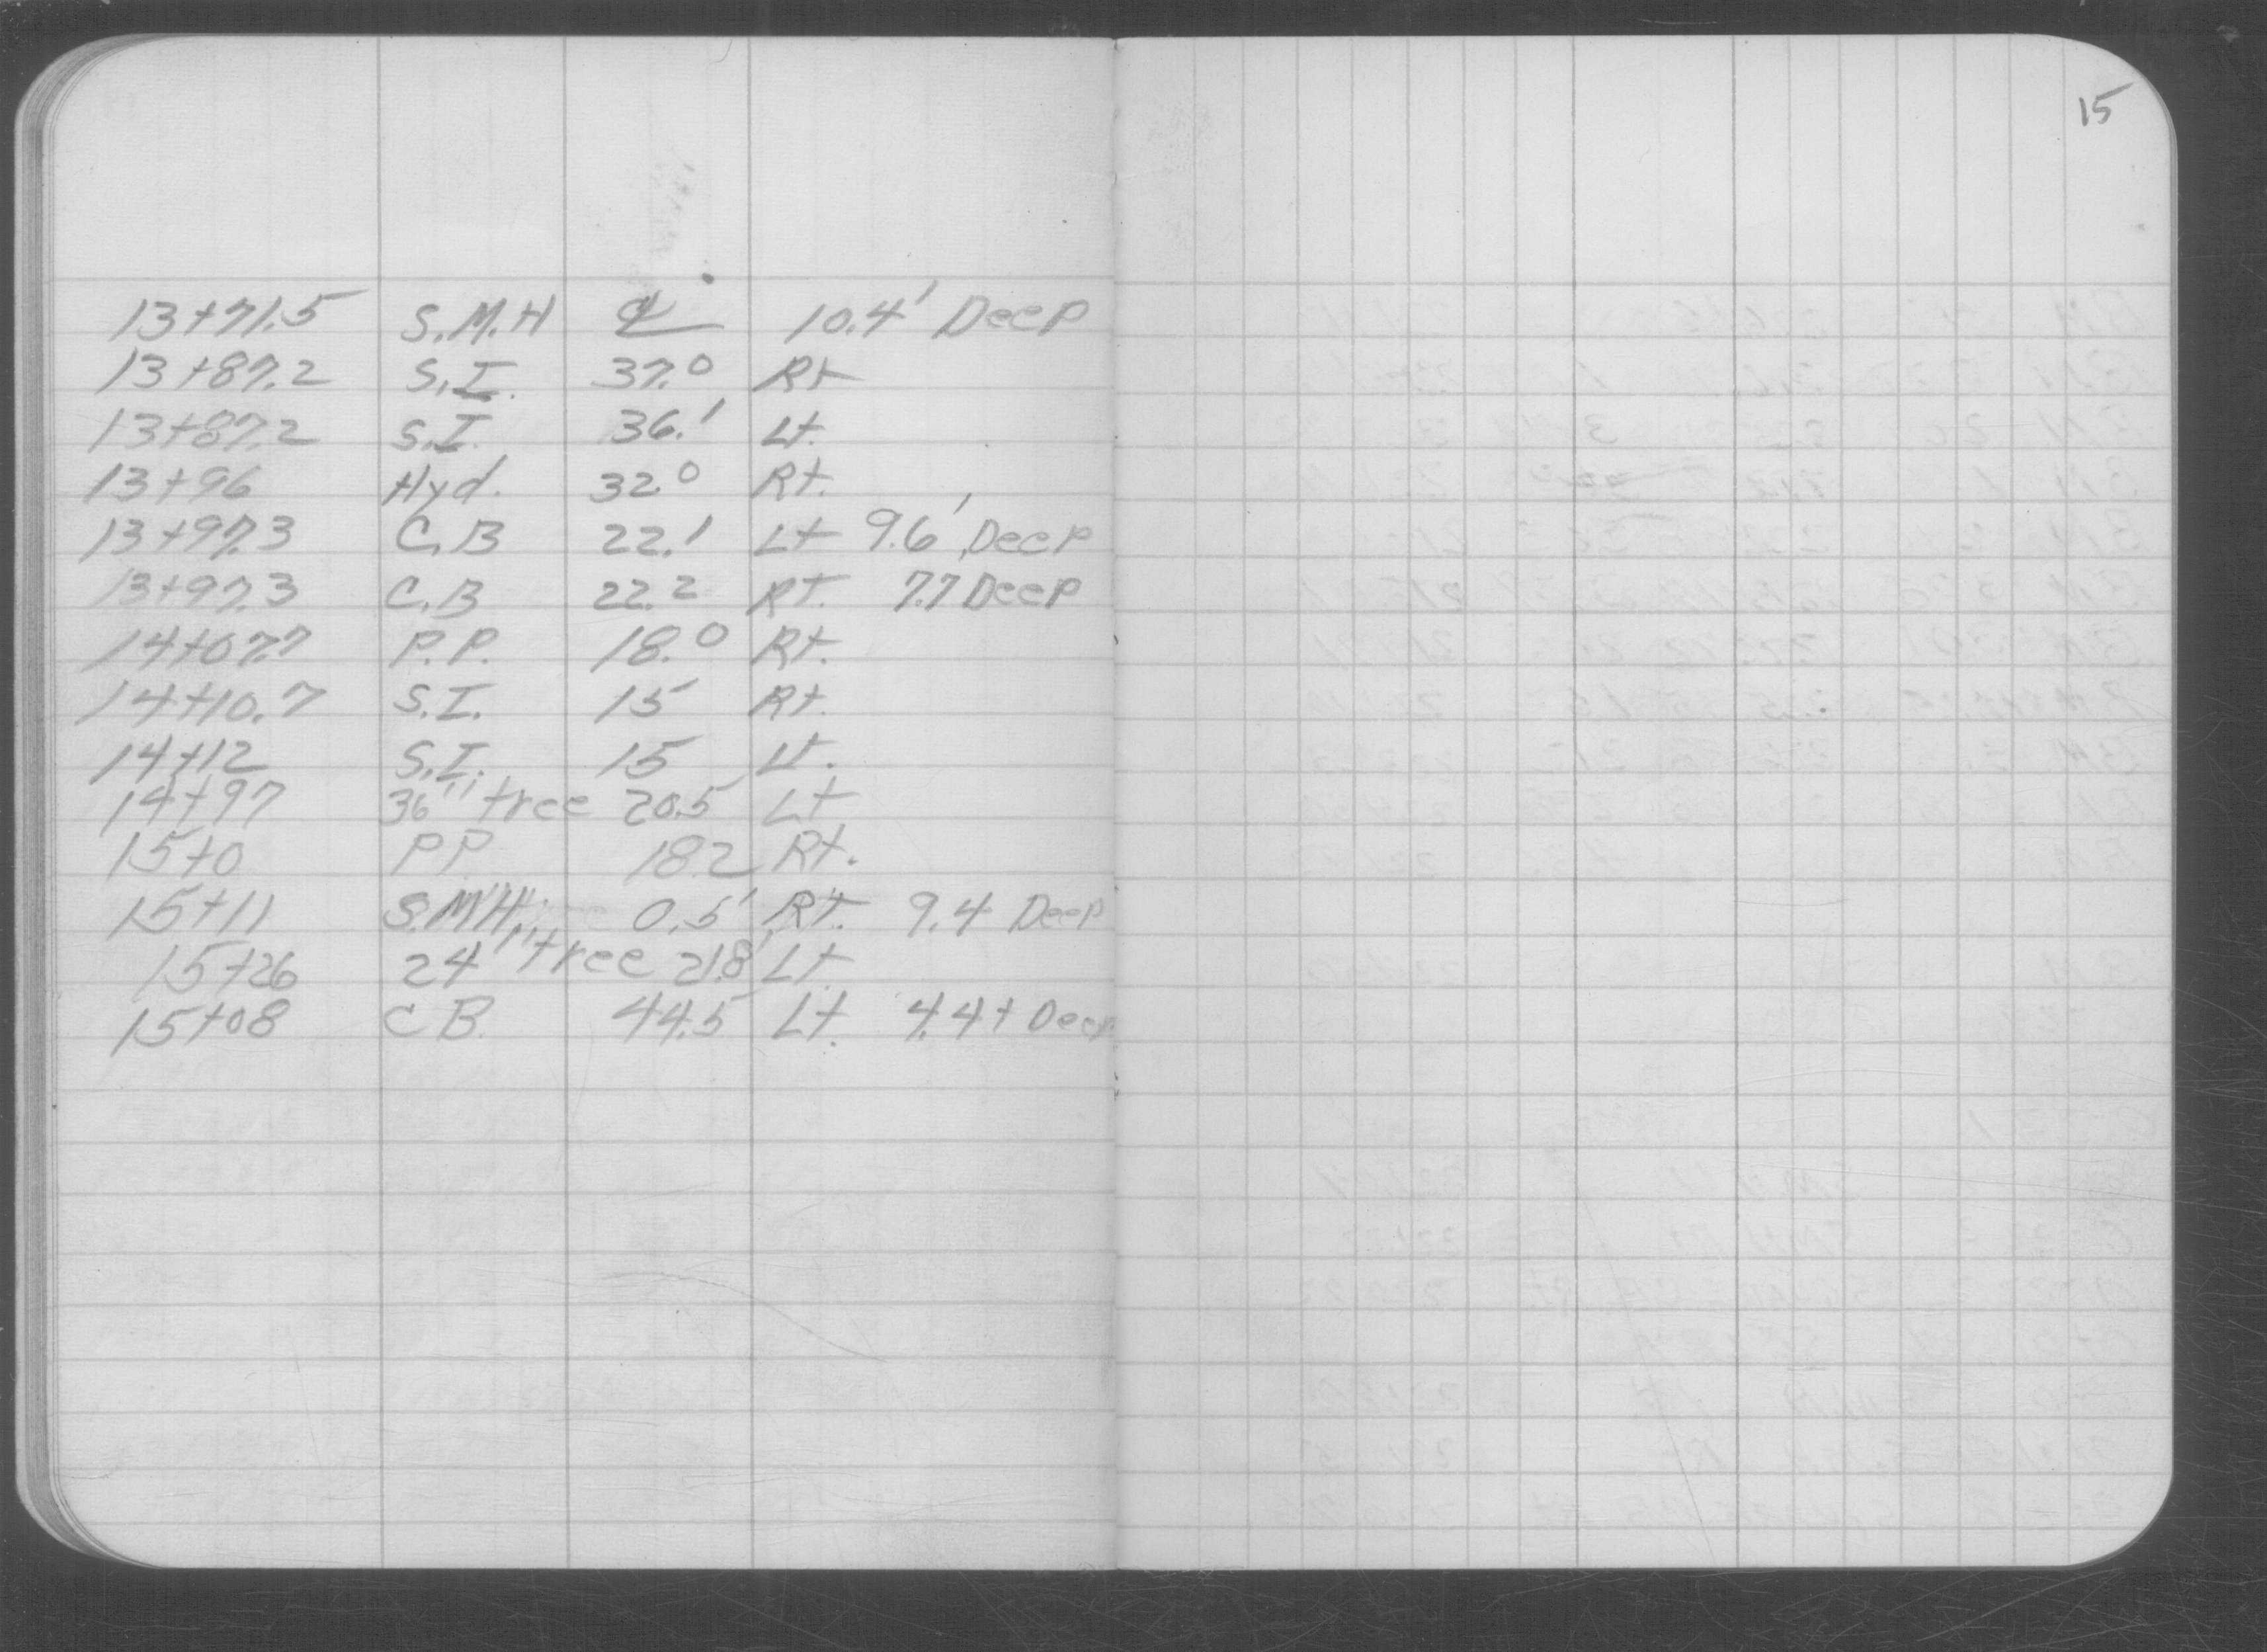 15
13+71.5 S.M.H ℄ 10.4' Deep
13+87.2 S.I. 37.0 Rt
13+87.2 S.I. 36.1 Lt.
13+96 Hyd. 32.0 Rt.
13+97.3 C.B 22.1 Lt 9.6' Deep
13+97.3 C.B 22.2 Rt. 7.7 Deep
14+07.7 P.P. 18.0 Rt.
14+10.7 S.I. 15 Rt.
14+12 S.I. 15 Lt.
14+97 36" tree 20.5 Lt
15+0 PP 18.2 Rt.
15+11 S.M.H. 0.5' Rt. 9.4 Deep
15+26 24" tree 21.8' Lt
15+08 C B. 44.5 Lt. 4.4+ Deep